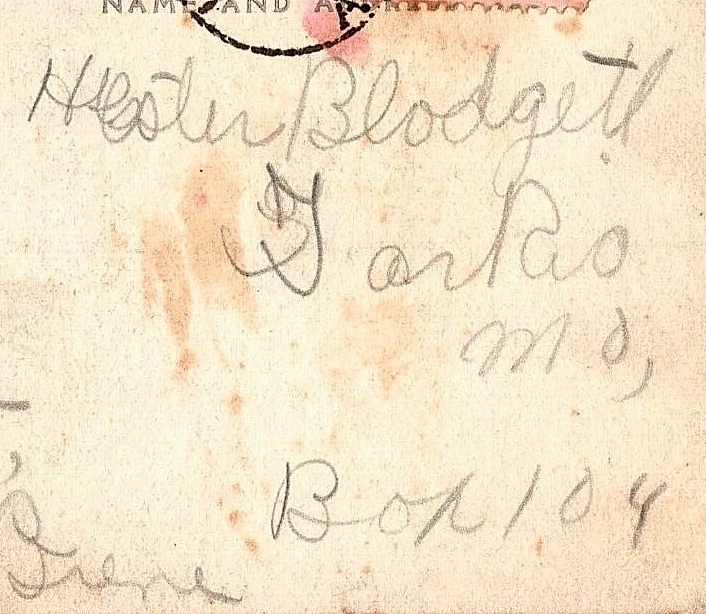 NAME AND
Hester Blodgett
Tarkio
Mo,
Box 104
Irene